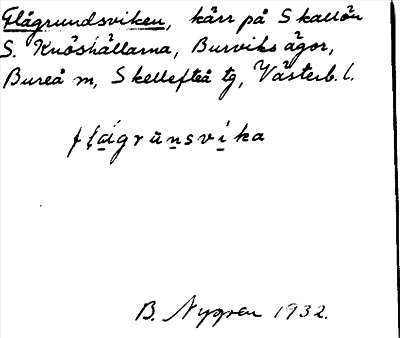 Flågrundsviken, kärr på Skallön
S. Knöshällarna, Burviks ägor,
Bureå sn, Skellefteå tg, Västerb. l.
flågrūnsvíka
B. Nygren 1932.